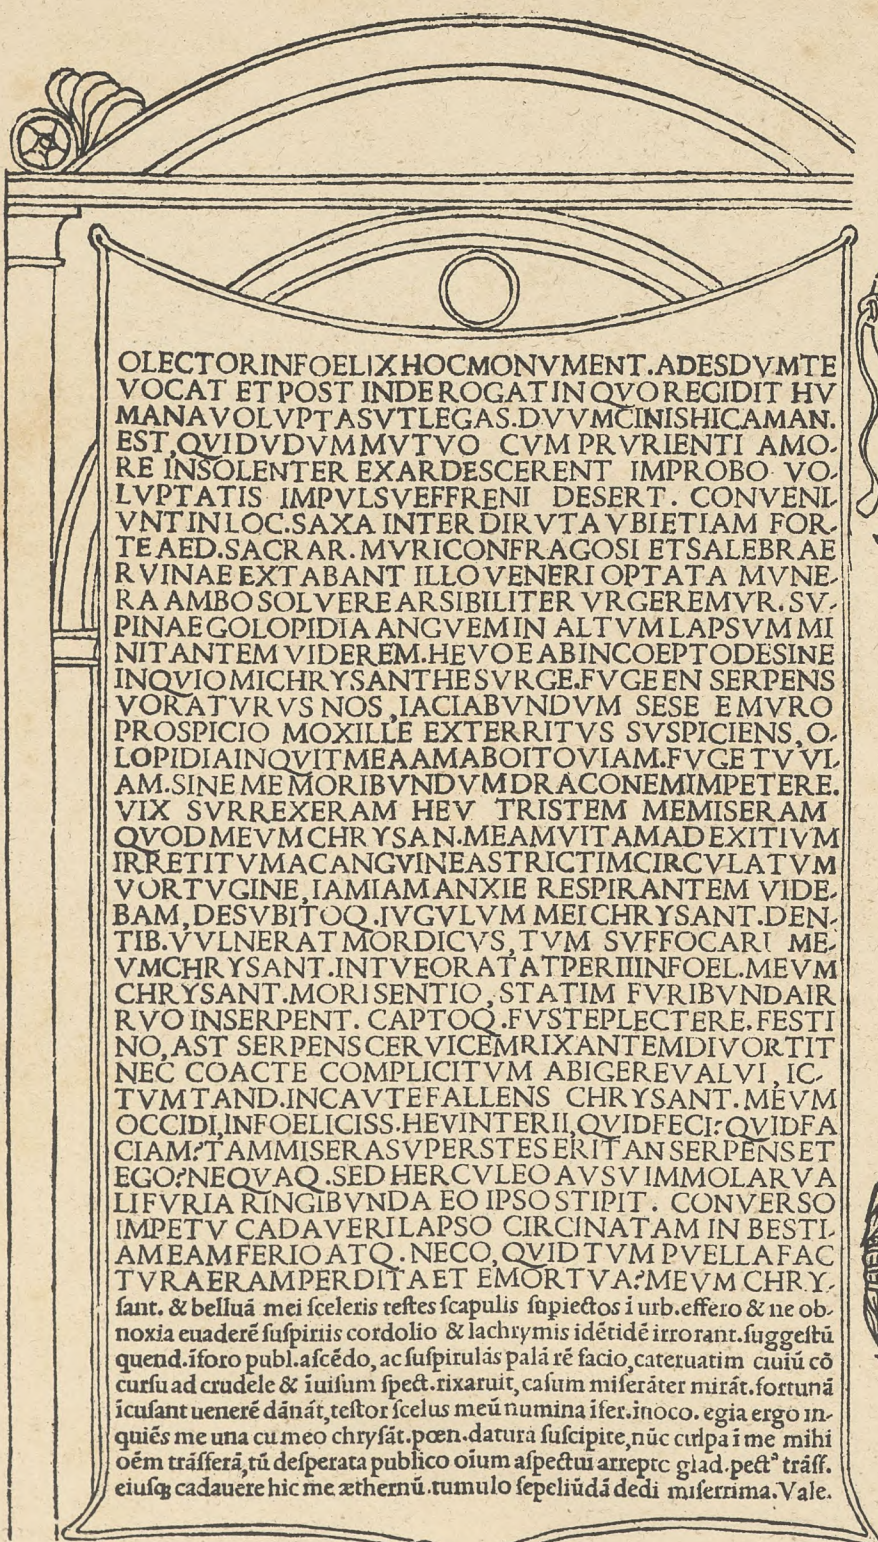 OLECTORINFOELIXHOCMONVMENT.ADESDVMTE
VOCAT ET POST INDE ROGAT IN QVO REGIDIT HV
MANAVOLVPTASVTLEGAS.DVVMCINISHICAMAN.
EST,QVIDVDVMMVTVO CVM PRVRIENTI AMO-
RE INSOLENTER EXARDESCERENT IMPROBO VO-
LVPTATIS IMPVLSVEFFRENI DESERT. CONVENI-
VNTINLOC.SAXA INTER DIRVTA VBIETIAM FOR-
TE AED.SACRAR. MVRICONFRAGOSI ETSALEBRAE
RVINAE EXTABANT ILLO VENERI OPTATA MVNE-
RA AMBO SOLVERE ARSIBILITER VRGEREMVR. SV-
PINAEGOLOPIDIA ANGVEMIN ALTVM LAPSVM MI
NITANTEM VIDEREM.HEVOE ABINCOEPTODESINE
INQVIO MICHRYSANTHE SVRGE.FVGE EN SERPENS
VORATVRVS NOS,IACIABVNDVM SESE EMVRO
PROSPICIO MOXILLE EXTERRITVS SVSPICIENS,O-
LOPIDIAINQVITMEAAMABOITOVIAM.FVGE TV VI-
AM.SINE ME MORIBVNDVMDRACONEMIMPETERE.
VIX SVRREXERAM HEV TRISTEM MEMISERAM
QVODMEVMCHRYSAN.MEAMVITAMADEXITIVM
IRRETITVMACANGVINEASTRICTIMCIRCVLATVM
VORTVGINE,IAMIAMANXIE RESPIRANTEM VIDE-
BAM,DESVBITOQ.IVGVLVM MEICHRYSANT.DEN-
TIB.VVLNERAT MORDICVS,TVM SVFFOCARI ME-
VMCHRYSANT.INTVEORATATPERIIINFOEL.MEVM
CHRYSANT.MORISENTIO,STATIM FVRIBVNDAIR
RVO INSERPENT. CAPTOQ.FVSTEPLECTERE.FESTI
NO,AST SERPENS CERVICEMRIXANTEMDIVORTIT
NEC COACTE COMPLICITVM ABIGEREVALVI,IC-
TVMTAND.INCAVTEFALLENS CHRYSANT.MEVM
OCCIDI,INFOELICISS.HEVINTERII,QVIDFECI?QVIDFA
CIAM?TAMMISERASVPERSTES ERIT AN SERPENS ET
EGO?NEQVAQ.SED HERCVLEO AVSV IMMOLARVA
LI FVRIA RINGIBVNDA EO IPSO STIPIT. CONVERSO
IMPETV CADAVERI LAPSO CIRCINATAM IN BESTI-
AMEAMFERIO ATQ.NECO,QVIDTVM PVELLA FAC
TVRAERAMPERDITA ET EMORTVA?MEVM CHRY-
ſant. & belluā mei ſceleris teſtes ſcapulis ſupiectos ī urb.effero & ne ob-
noxia euaderē ſuſpiriis cordolio & lachrymis idētidē irrorant.ſuggeſtū
quend.īforo publ.aſcēdo, ac ſuſpirulās palā rē facio,cateruatim ciuiū cō
curſu ad crudele & īuiſum ſpect.rixaruit,caſum miſerāter mirāt.fortunā
īcuſant uenerē dānāt,teſtor ſcelus meū numina īfer.īnoco. egia ergo in-
quiēs me una cu meo chryſāt.pœn.datura ſuſcipite,nūc culpa ī me mihi
oēm trāſferā,tū deſperata publico oīum aſpectui arrepto glad.pectᵃ trāſſ.
eiuſqꝫ cadauere hic me æthernū.tumulo ſepeliūdā dedi miſerrima.Vale.